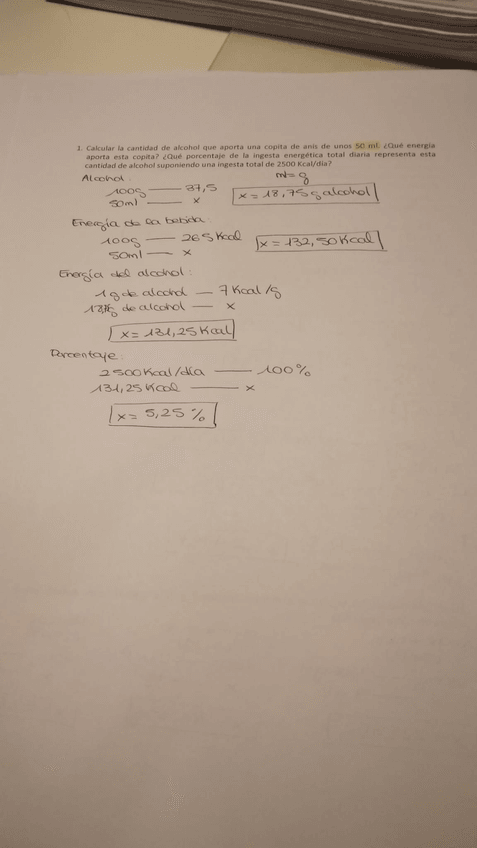 1. Calcular la cantidad de alcohol que aporta una copita de anis de unos 50 ml. ¿Qué energía
aporta esta copita? ¿Qué porcentaje de la ingesta energética total diaria representa esta
cantidad de alcohol suponiendo una ingesta total de 2500 Kcal/día?
Alcohol: ml=g
100g — 37,5 x = 18,75 g alcohol
50ml — x
Energía de la bebida:
100g — 265 Kcal x = 132,50 Kcal
50ml — x
Energía del alcohol:
1g de alcohol — 7 Kcal/g
18,75g de alcohol — x
x = 131,25 Kcal
Porcentaje:
2500 Kcal/día — 100%
131,25 Kcal — x
x = 5,25 %